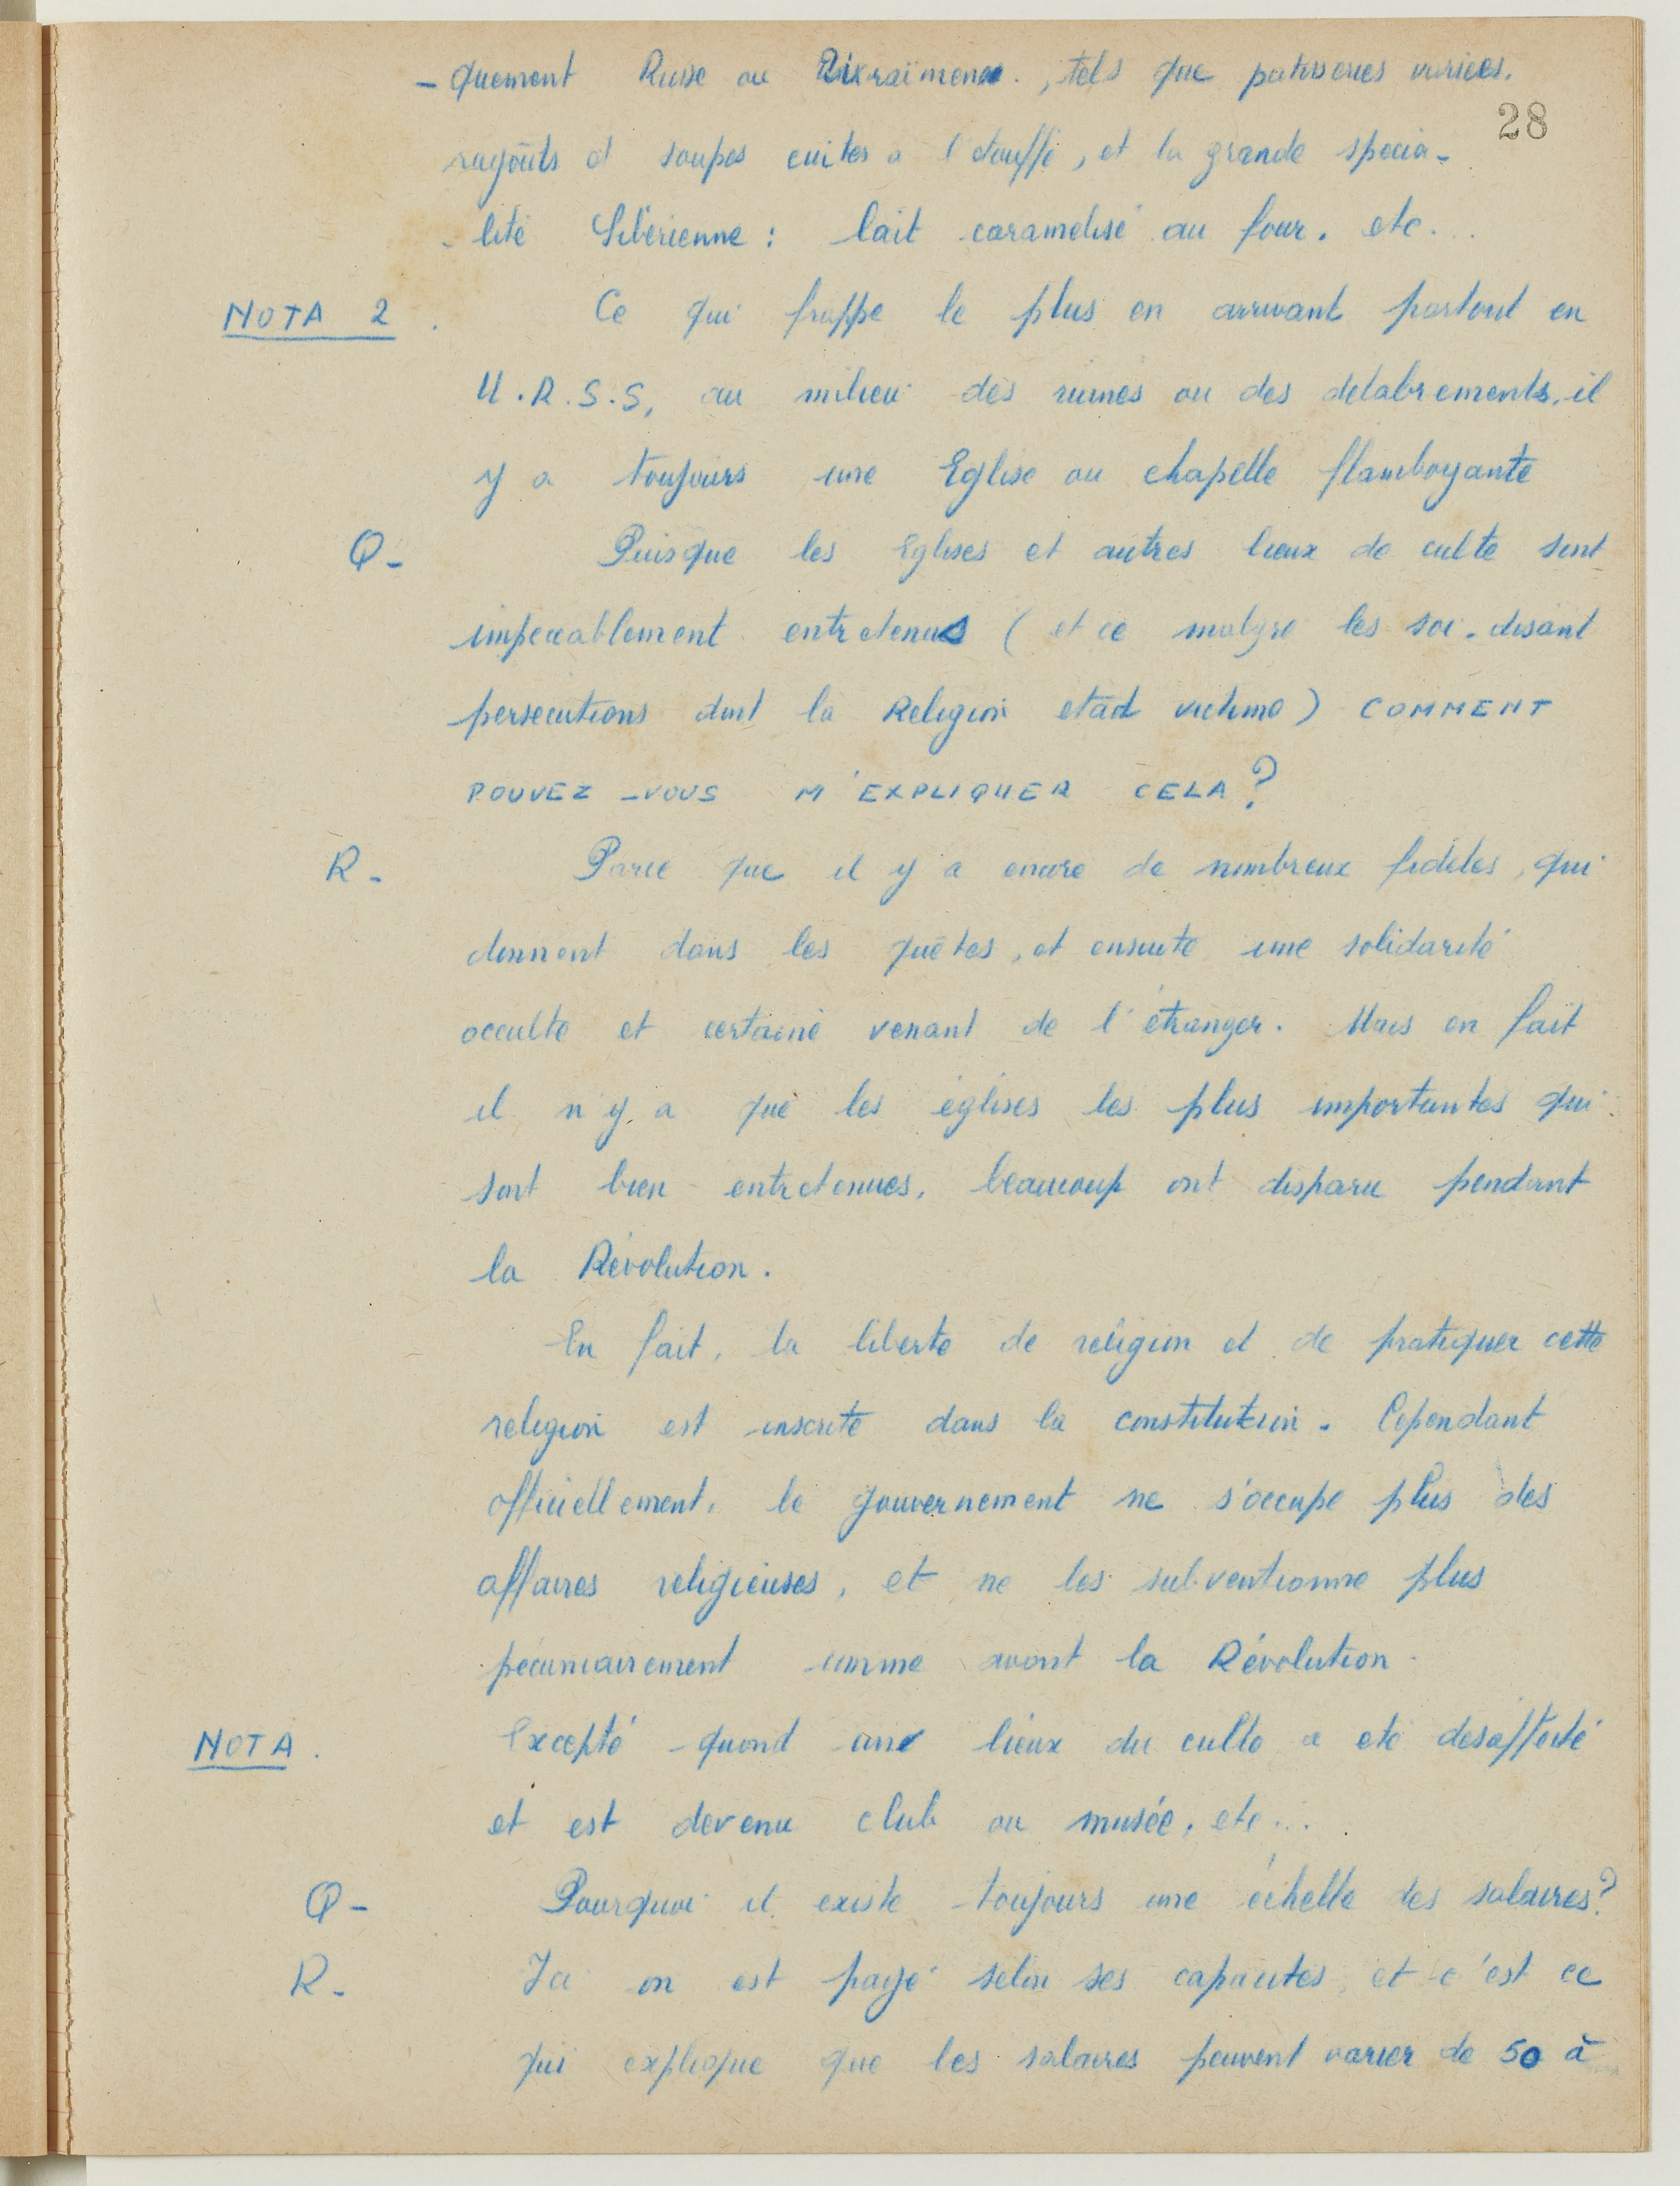 - quement Russe ou Ukraïmenne, tels que patisseries variées.
28
ragoûts et soupes cuites a l'étouffé, et la grande spécia-
- lité Sibérienne : lait caramelisé au four. etc...
NOTA 2. Ce qui frappe le plus en arrivant partout en
U.R.S.S, au milieu des ruines ou des delabrements, il
y a toujours une Eglise ou chapelle flamboyante
Q- Puisque les Eglises et autres lieux de culte sont
impeccablement entretenus ( et ce malgré les soi-disant
persecutions dont la Religion etait victime) COMMENT
POUVEZ-VOUS M'EXPLIQUER CELA?
R- Parce que il y a encore de nombreux fidèles, qui
donnent dans les quêtes, et ensuite une solidarité
occulte et certaine venant de l'étranger. Mais en fait
il n'y a que les églises les plus importantes qui
sont bien entretenues, beaucoup ont disparu pendant
la Révolution.
En fait, la liberte de religion et de pratiquer cette
religion est inscrite dans la constitution. Cependant
officiellement, le gouvernement ne s'occupe plus des
affaires religieuses, et ne les subventionne plus
pécuniairement comme avant la Révolution.
NOTA. Excepté quand une lieux du culte a eté désaffecté
et est devenu club ou musée, etc...
Q- Pourquoi il existe toujours une échelle des salaires?
R- Ici on est payé selon ses capacites, et c'est ce
qui explique que les salaires peuvent varier de 50 à